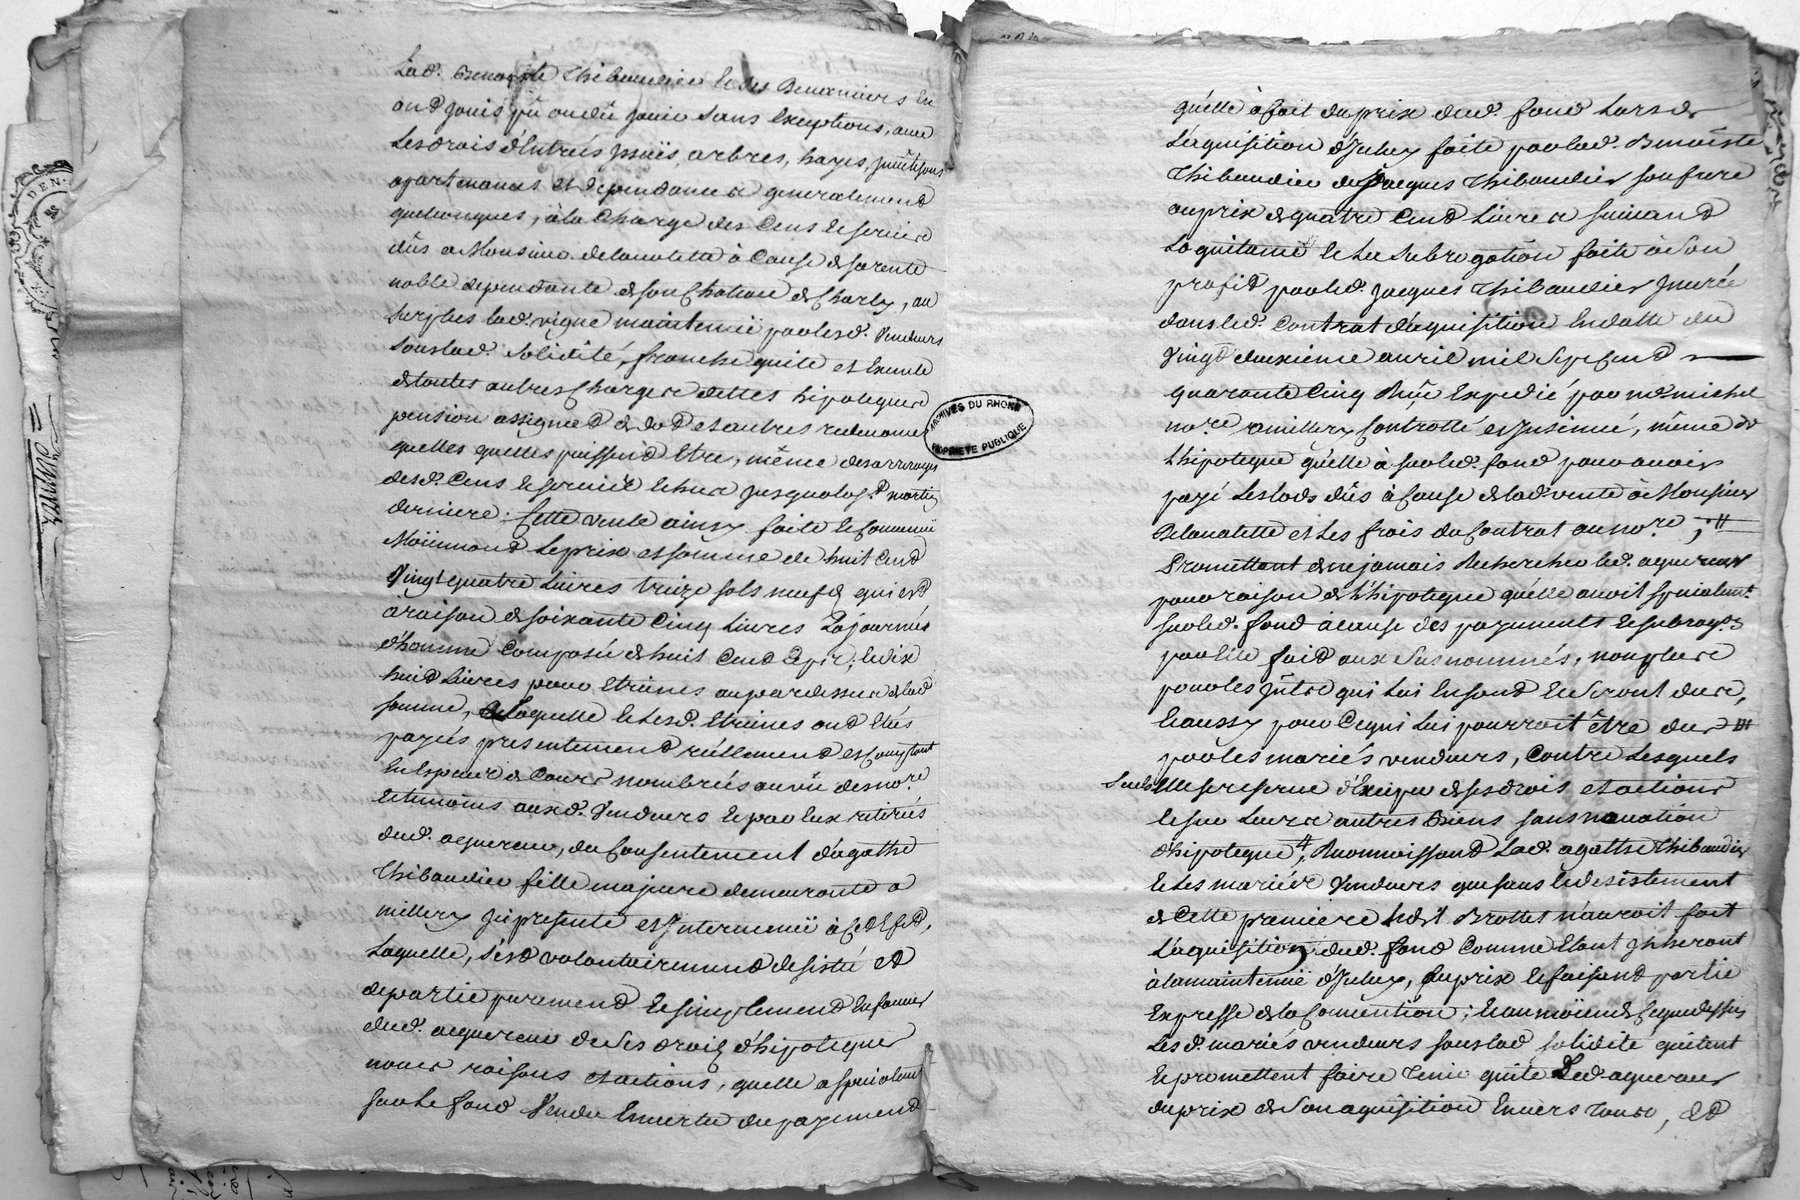 Lad. Benoiste Thibaudier et ses devanciers en
ont joüis pû ou dû jouir sans exceptions, avec
les drois d'entrées issües, arbres, hayes, jonctions
apartenances et dependances generalement
quelconques, à la charge des cens et servis
dûs a Monsieur delavalette à cause de sa rente
noble dependante de son chateau de Charly, au
surplus lad. vigne maintenüe par lesd. vendeurs
souslad. solidité, franche quite et exemte
de toutes autres charges dettes hipoteques
pension assignée de dot et autres redevances
quelles quelles puissent etre, même des arrerages
desd. cens et servis echus jusqua la St martin
derniere. Cette vente ainsy faite et convenüe
Moiennant le prix et somme de huit cent
vingt quatre Livres treize sols neuf d. qui est
a raison de soixante cinq Livres La journée
d'homme composée de huit cent seps; et dix
huit Livres pour etrenes au par dessus de lad
somme, de laquelle et lesd. etrenes ont etés
payés presentement réellement et comptant
en espece de cours nombrés au vû des no.re
et temoins auxd. vendeurs et par eux retirés
dud. aquereur, du consentement d'agathe
Thibaudier fille majeure demeurante a
millery ici presente et intervenüe à cet effet,
Laquelle, s'est volontairement desistée et
departie purement et simplement en faveur
dud. aquereur de ses droits d'hipoteques
noms raisons et actions, quelle a specialemt
sur le fond vendu en vertu du payement
quelle à fait du prix dud. fond Lors de
L'aquisition d'iceluy faite par lad. Benoiste
Thibaudier de Jacques Thibaudier son frere
au prix de quatre cent Livres suivant
La quitance et la subrogation faite à son
profit par led. Jacques Thibaudier inserée
dans led. contrat d'aquisition en datte du
vingt deuxieme avril mil sept cent
quarante cinq Reçu Expedié par me michel
no.re a millery controllé et insinué, même de
L'hipoteque quelle à sur led. fond pour avoir
payé Les lods dûs à cause de lad vente à Monsieur
Delavalette et Les frais du contrat au no.re ;
Promettant de ne jamais Rechercher led. aquereur
pour raison de L'hipoteque quelle avoit specialemt
sur led. fond à cause des payements et subrogns
par elle fait aux susnommés, non plus
pour les jnts qui Lui en sont et seront dus,
Et aussy pour ce qui Lui pourroit être du
par les mariés vendeurs, contre Lesquels
seuls Elle se reserve d'exciper de ses drois et actions
et sur Leurs autres Biens sans novation
d'hipoteque, Reconnoissant Lad. agathe Thibaudier
et Les mariés vendeurs que sans Le desistement
de cette premiere led.t Brottet n'auroit fait
L'aquisition dud. fond comme etant inherant
à la maintenüe d'iceluy, du prix et faisant partie
expresse de la convention; et au moïen de ce que dessus
Les d. mariés vendeurs sous lad solidité quitent
et promettent faire tenir quite Led. aquereur
du prix de son aquisition envers tous, et
ARCHIVES DU RHONE
PROPRIETE PUBLIQUE